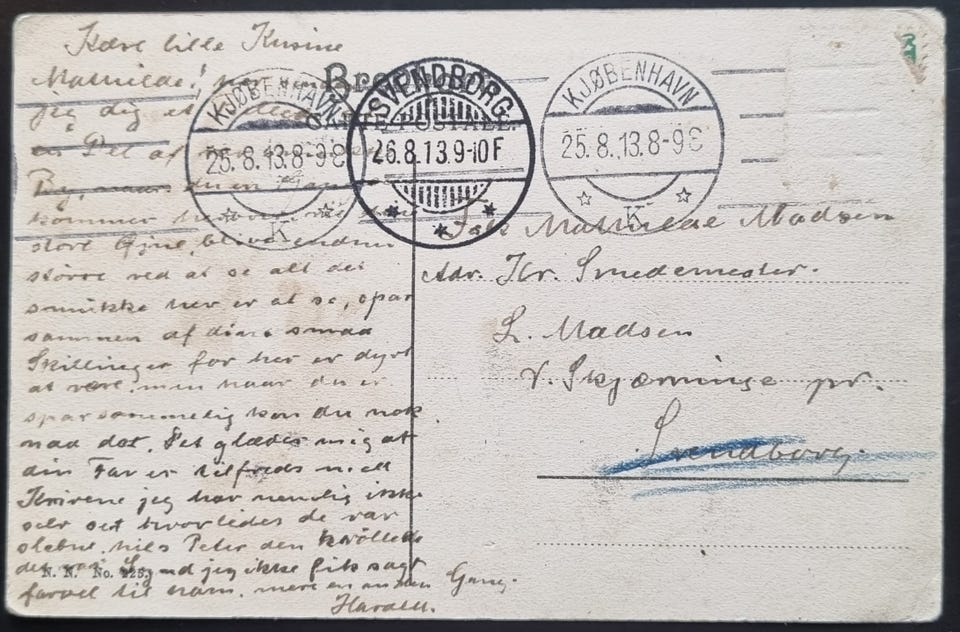 Kære lille Kusine
Mathilde!
jeg dig et
By, naar du en Gang
kommer herover vil dine
store Øjne blive endnu
større ved at se alt det
smukke her er at se, spar
sammen af dine smaa
Skillinger for her er dyrt
at være, men naar du er
sparsommelig kan du nok
naa det. Det glæder mig at
din Far er tilfreds med
Knivene jeg har nemlig ikke
selv set hvorledes de var
slebne. hils Peter den
jeg ikke fik sagt
farvel til ham. mere en anden Gang.
Harald.
Brev
CARTE POSTALE.
KJØBENHAVN
25.8.13.8-9
K
SVENDBORG
26.8.13.9-10F
KJØBENHAVN
25.8.13.8-9
K
Frk Mathilde Madsen
Adr. Hr. Smedemester.
L. Madsen
V. Skjerninge pr.
Svendborg.
N. N. No. 225.